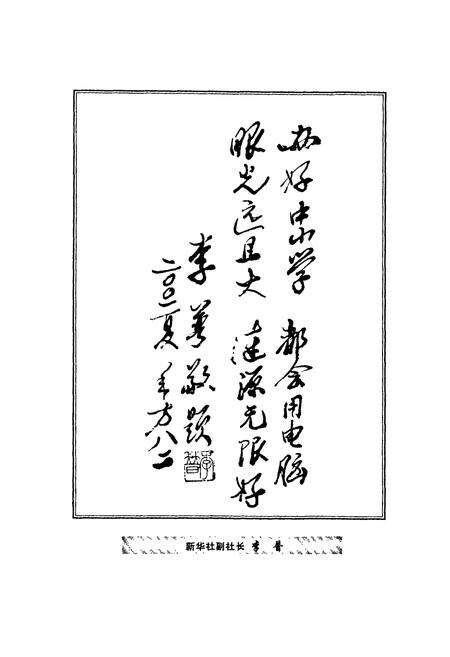 办好中小学 都会用电脑
眼光远且大 涟源无限好
李普敬题
二〇〇一夏 年方八二
李普
新华社副社长 李 普